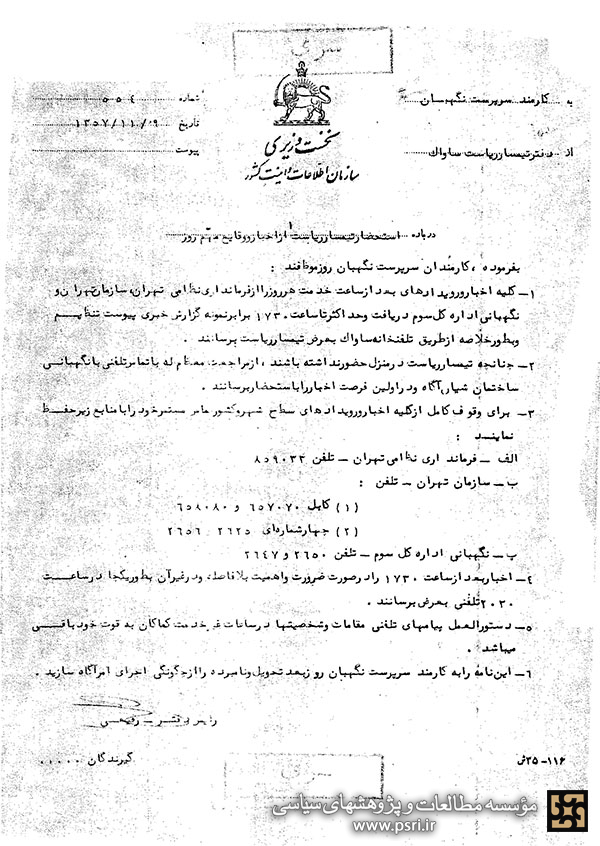 سری
به کارمند سرپرست نگهبان
از دفتر تیمسار ریاست ساواک
نخست وزیری
سازمان اطلاعات و امنیت کشور
شماره ۵۵۴
تاریخ ۱۳۵۷/۱۱/۰۹
پیوست
درباره استحضار تیمسار ریاست از اخبار و وقایع مهم روز
بفرموده ، کارمندان سرپرست نگهبان روز موظفند :
۱- کلیه اخبار و رویدادهای بعد از ساعت خدمت هر روز را از فرمانداری نظامی تهران، سازمان تهران و
نگهبانی اداره کل سوم دریافت و حداکثر تا ساعت ۱۷۳۰ برابر نمونه گزارش خبری پیوست تنظیم
و بطور خلاصه از طریق تلفنخانه ساواک بعرض تیمسار ریاست برسانند .
۲- چنانچه تیمسار ریاست در منزل حضور نداشته باشند ، از مراجعت معظم له با تماس تلفنی با نگهبانی
ساختمان شیان آگاه و در اولین فرصت اخبار را باستحضار برسانند .
۳- برای وقوف کامل از کلیه اخبار و رویدادهای سطح شهر و کشور تماس مستمر خود را با منابع زیر حفظ
نمایند :
الف - فرمانداری نظامی تهران - تلفن ۸۵۹۰۳۳
ب - سازمان تهران - تلفن :
(۱) کابل ۶۵۷۰۷۰ و ۶۵۸۰۸۰
(۲) چهار شماره‌ای ۲۶۲۵ ۲۶۵۶
پ - نگهبانی اداره کل سوم - تلفن ۲۶۵۰ و ۲۶۴۷
۴- اخبار بعد از ساعت ۱۷۳۰ را در صورت ضرورت و اهمیت بلافاصله و در غیر آن بطور یکجا در ساعت
۲۰۳۰ تلفنی بعرض برسانند .
۵- دستورالعمل پیامهای تلفنی مقامات و شخصیتها در ساعات غیر خدمت کماکان به قوت خود باقی
میباشد .
۶- این نامه را به کارمند سرپرست نگهبان روز بعد تحویل و نامبرده را از چگونگی اجرای امر آگاه سازید .
رئیس دفتر -
گیرندگان ۰۰۰۰۰
۱۱۶-۳۵ش
سری
مؤسسه مطالعات و پژوهشهای سیاسی
www.psri.ir